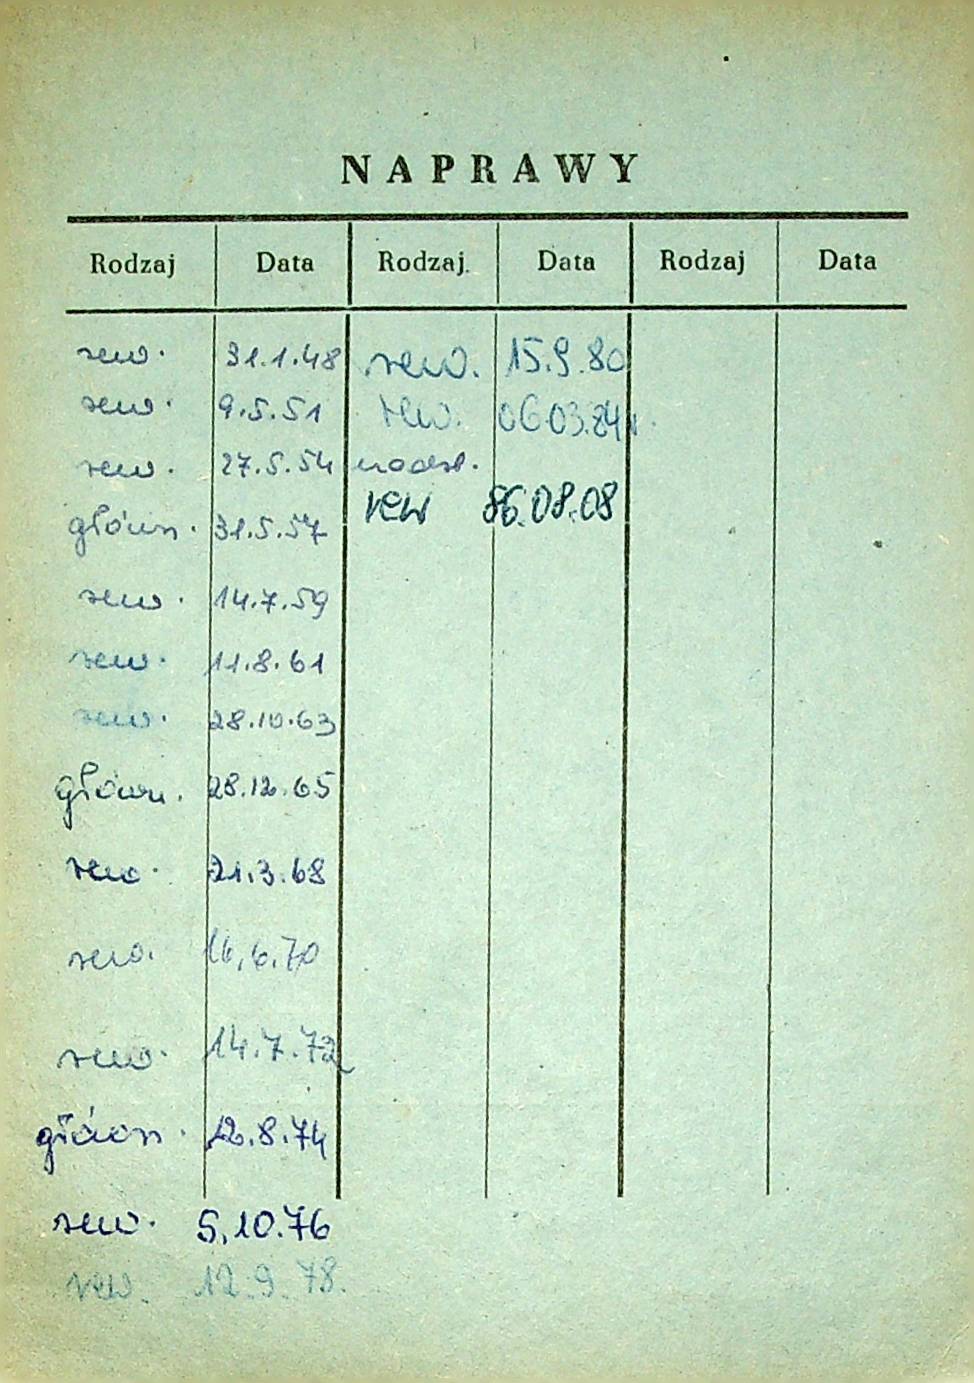 NAPRAWY
Rodzaj Data Rodzaj Data Rodzaj Data
rew. 31.1.48 rew. 15.9.80
rew. 9.5.51 rew. 06.03.84r.
rew. 27.5.54 nadsł.
główn. 31.5.57 rew 86.08.08
rew. 14.7.59
rew. 11.8.61
rew. 28.10.63
główn. 28.12.65
rew. 21.3.68
rew. 16.6.70
rew. 14.7.72
główn. 12.8.74
rew. 5.10.76
rew. 12.9.78.